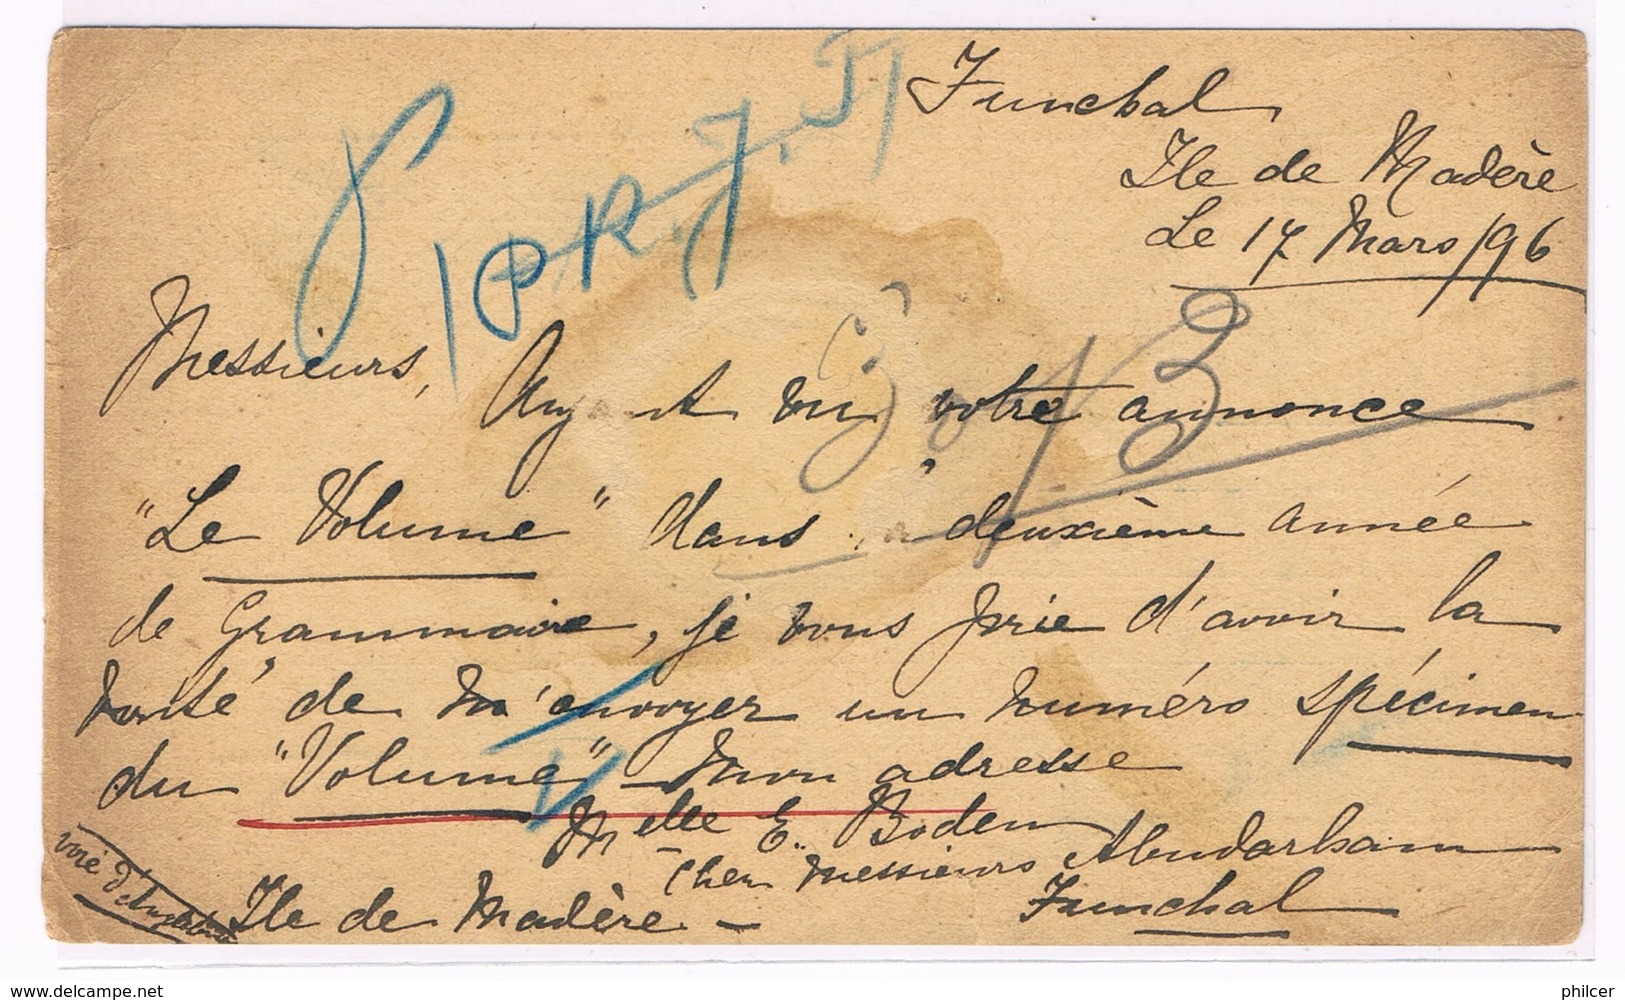 Funchal
Ile de Madère
Le 17 Mars/96
Messieurs,
Ayant vu votre annonce
"Le Volume" dans la deuxième année
de Grammaire, je vous prie d'avoir la
bonté de m'envoyer un numéro spécimen
du "Volume" Mon adresse
Melle E. Boden
Chez Messieurs Abudarham
Funchal
Ile de Madère. –
voie d'Angleterre
3
www.delcampe.net
philcer